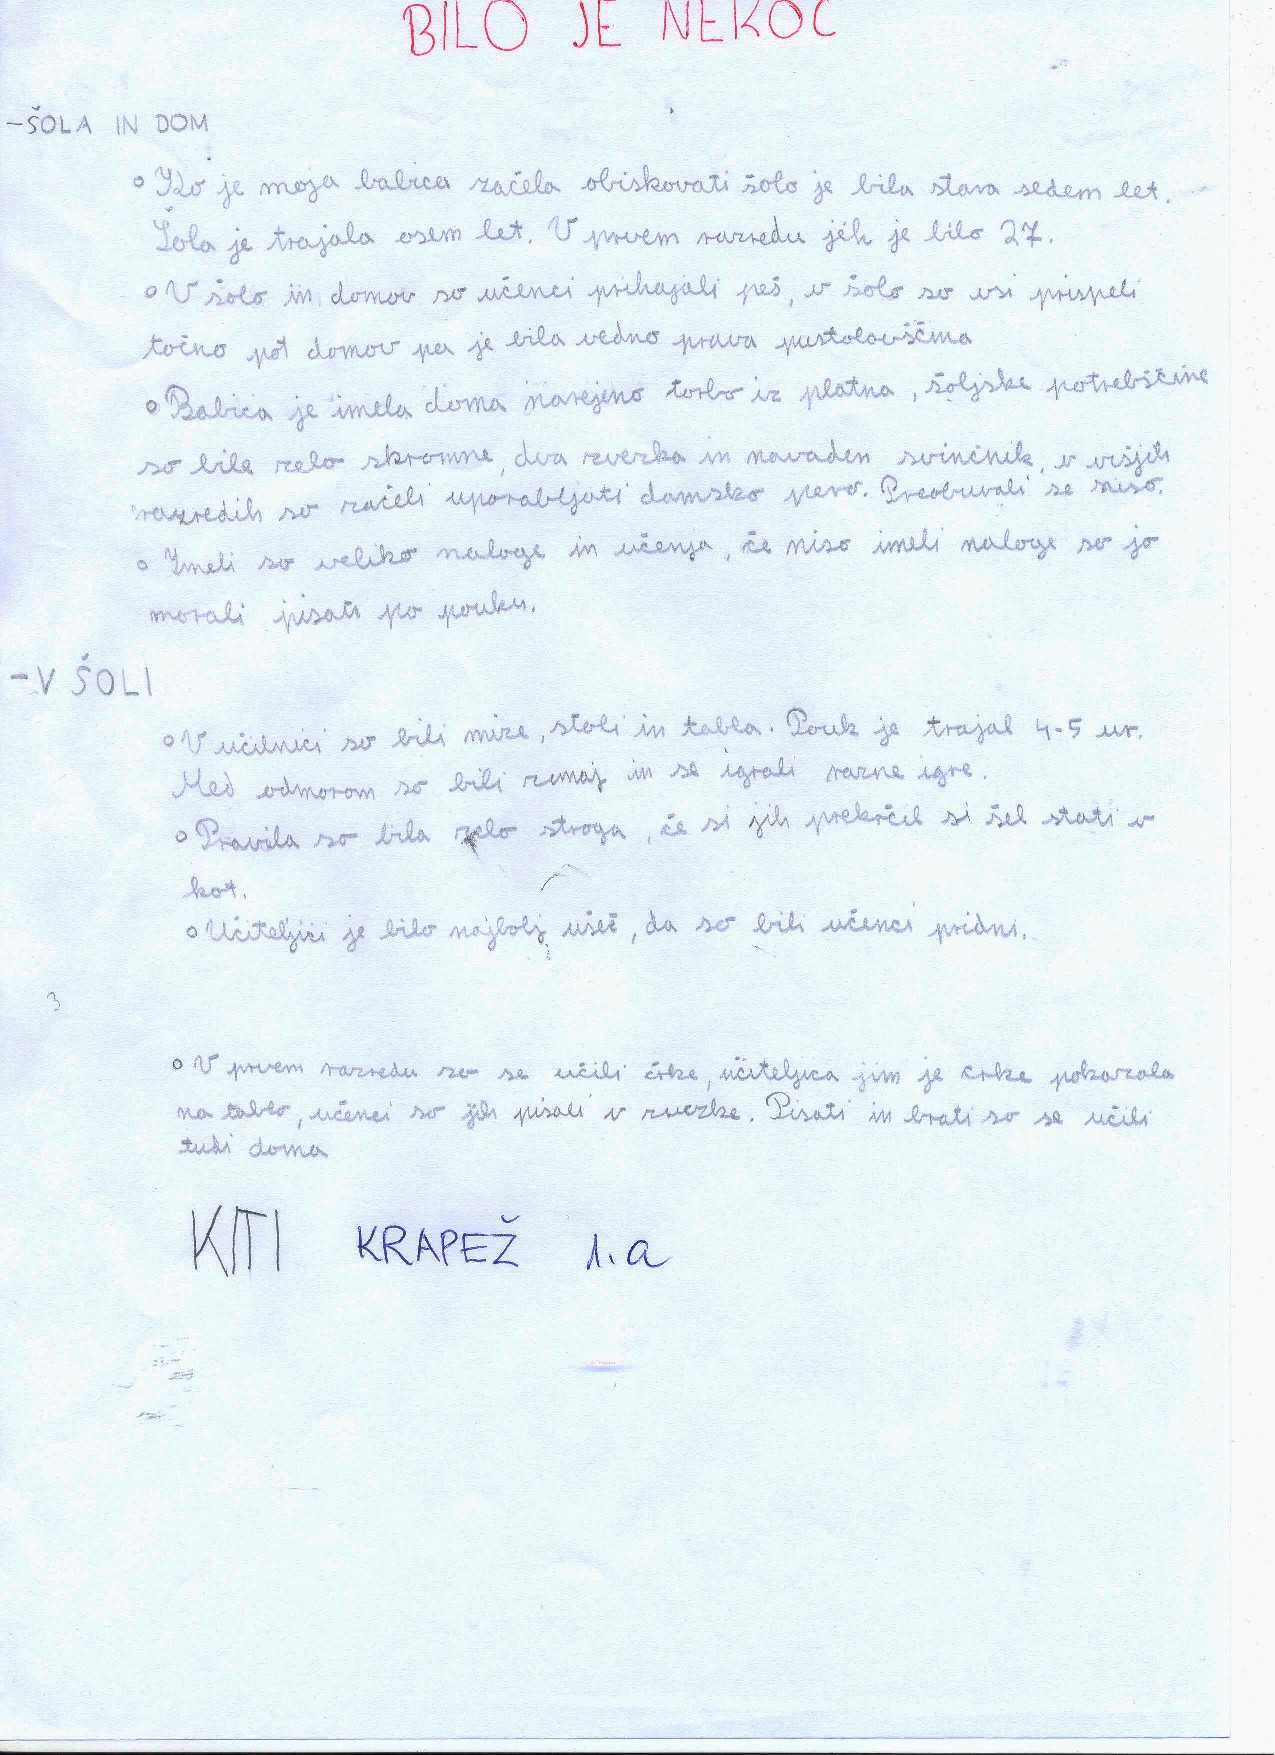 BILO JE NEKOČ
-ŠOLA IN DOM
o Ko je moja babica začela obiskovati šolo je bila stara sedem let.
Šola je trajala osem let. V prvem razredu jih je bilo 27.
o V šolo in domov so učenci prihajali peš, v šolo so vsi prispeli
točno pot domov pa je bila vedno prava pustolovščina
o Babica je imela doma narejeno torbo iz platna, šoljske potrebščine
so bile zelo skromne, dva zvezka in navaden svinčnik, v višjih
razredih so začeli uporabljati damsko pero. Preobuvali se niso.
o Imeli so veliko naloge in učenja, če niso imeli naloge so jo
morali pisati po pouku.
-V ŠOLI
o V učilnici so bili mize, stoli in tabla. Pouk je trajal 4-5 ur.
Med odmorom so bili zunaj in se igrali razne igre.
o Pravila so bila zelo stroga, če si jih prekršil si šel stati v
kot.
o Učiteljici je bilo najbolj všeč, da so bili učenci pridni.
3
o V prvem razredu so se učili črke, učiteljica jim je črke pokazala
na tablo, učenci so jih pisali v zvezke. Pisati in brati so se učili
tudi doma
KITI KRAPEŽ 1.a